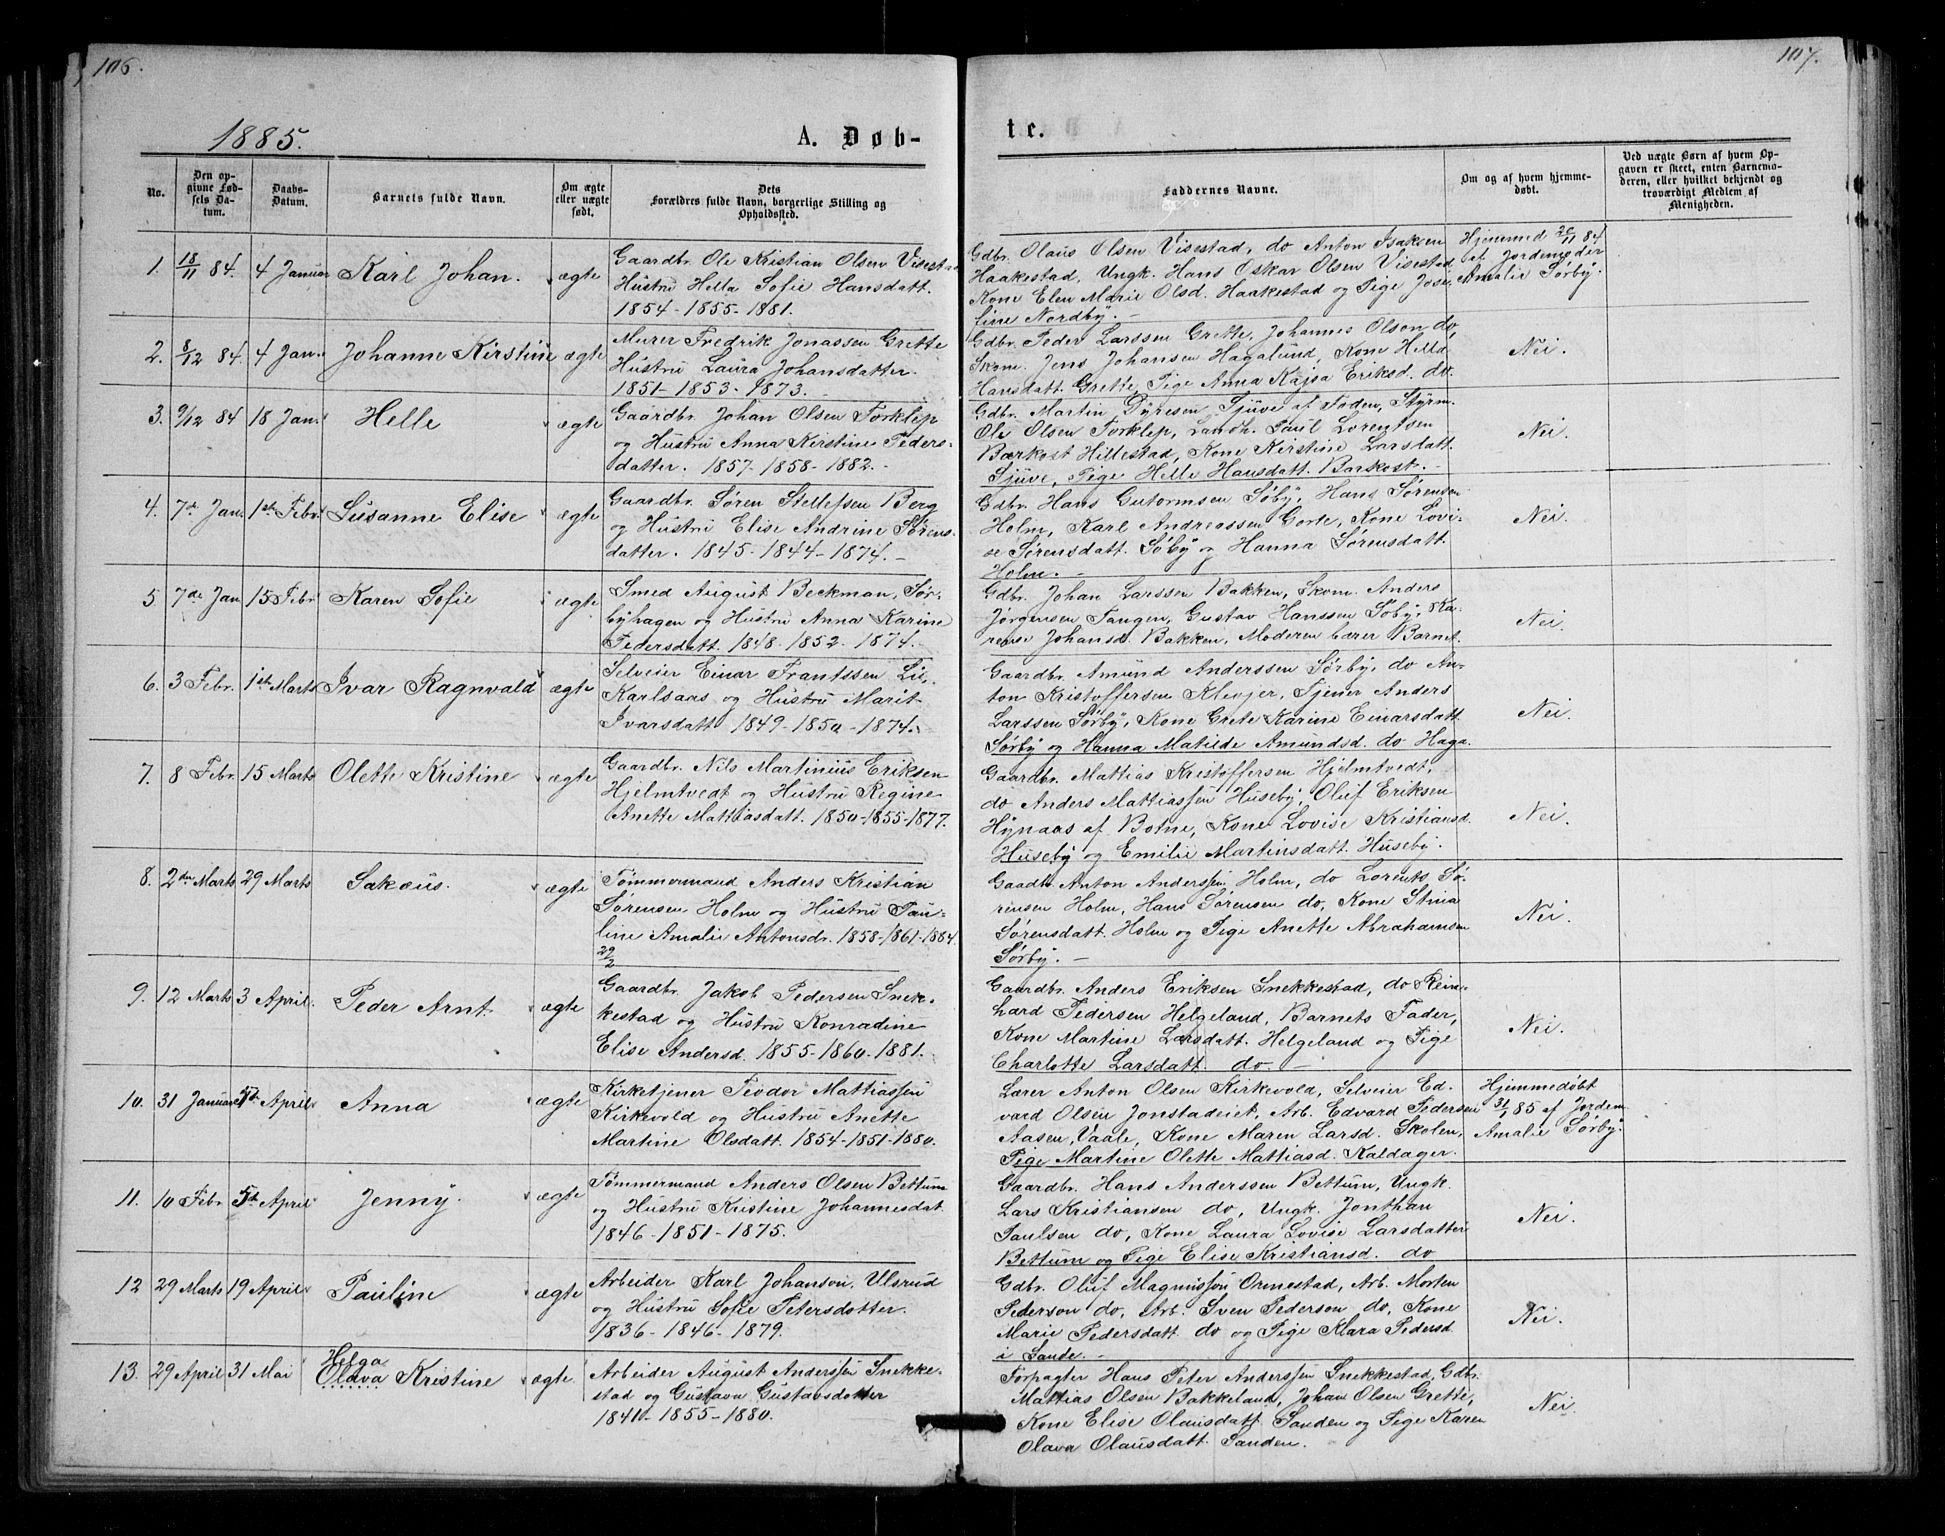 106.
107.
1885.
A. Døb-
te.
No.
Den op-
givne Fød-
sels Da-
tum.
Daabs-
Datum.
Barnets fulde Navn.
Om ægte
eller uægte
født.
Dets
Forældres fulde Navn, borgerlige Stilling og
Opholdssted.
Faddernes Navne.
Om og af hvem hjemme-
døbt.
Ved uægte Børn af hvem Op-
gaven er skeet, enten Barnemo-
deren, eller hvilket bekjendt og
troværdigt Medlem af
Menigheden.
1. 18/11 84. 4 Januar Karl Johan. ægte
Gaardbr. Ole Kristian Olsen Visestad
Hustru Hella Sofie Hansdatt.
1854-1855-1881.
Gdbr. Olaus Olsen Visestad, do Anton Isaksen
Haakestad, Ungk. Hans Oskar Olsen Visestad
Kone Elen Marie Olsd. Haakestad og Pige Jose-
fine Nordby.
Hjemmed 20/11 84.
af Jordemoder
Amalie Sørby.
2. 8/12 84. 4 Jan. Johanne Kirstine ægte
Murer Fredrik Jonassen Grette
Hustru Laura Johansdatter.
1851-1853-1873.
Gdbr. Peder Larssen Grette, Johannes Olson do,
Skom. Jens Johansen Hagalund, Kone Helld
Hansdatt. Grette, Pige Anna Kajsa Eriksd. do.
Nei.
3. 9/12 84 18 Jan. Helle ægte
Gaardbr. Johan Olsen Torklep
og Hustru Anna Kirstine Peders-
datter. 1857-1858-1882.-
Gdbr. Martin Pyresen Sjuve af Foden, Styrm.
Ole Olsen Torklep, Landh. Paul Lorentsen
Bærkost Hillestad, Kone Kirstine Larsdatt.
Sjuve, Pige Helle Hansdatt. Barkost.-
Nei.
4. 7de Jan. 1ste Febr. Susanne Elise ægte
Gaardbr. Søren Stellefsen Berg
og Hustru Elise Andrine Sørens-
datter. 1845-1844-1874.-
Gdbr. Hans Gutormsen Søby, Hans Sørensen
Holm, Karl Andreassen Gorte, Kone Lovi-
se Sørensdatt. Søby og Hanna Sørensdatt.
Holm.-
Nei.
5. 7de Jan 15 Febr Karen Sofie ægte
Smed August Beckman, Sør-
byhagen og Hustru Anna Karine
Pedersdatt. 1848-1852-1874.
Gdbr. Johan Larssen Bakken, Skom. Anders
Jørgensen Tangen, Gustav Hanssen Søby, Ka-
rense Johansd. Bakken, Moderen bærer Barnet.
Nei.
6. 3 Febr. 1ste Marts Ivar Ragnvald ægte
Selveier Einar Frantssen Li,
Karlsaas og Hustru Marit
Ivarsdatt. 1849-1850-1874.
Gaardbr. Amund Anderssen Sørby, do An-
ton Kristoffersen Klevjer, Tjener Anders
Larssen Sørby, Kone Grete Karine Einarsdatt.
Sørby og Hanna Matilde Amundsd. do Haga.
Nei.
7. 8 Febr. 15 Marts Olette Kristine ægte
Gaardbr. Nils Martinius Eriksen
Hjelmtvedt og Hustru Regine
Anette Mattiasdatt. 1850-1855-1877.
Gaardbr. Mattias Kristoffersen Hjelmtvedt,
do Anders Mattiassen Huseby, Oluf Eriksen
Hynaas af Botne, Kone Lovise Kristiansd.
Huseby og Emilie Martinsdatt. Huseby.
Nei.
8. 2den Marts 29 Marts Sakæus. ægte
Tømmermand Anders Kristian
Sørensen Holm og Hustru Pau-
line Amalie Antonsdr. 1858-1861-1884.
29/2
Gaadbr. Anton Anderssen Holm, do Lorents Sø-
rensen Holm, Hans Sørensen do, Kone Stina
Sørensdatt. Holm og Pige Anette Abrahamsen
Sørby.-
Nei.
9. 12 Marts 3 April. Peder Arnt ægte
Gaardbr. Jakob Pedersen Snek-
kestad og Hustru Konradine
Elise Andersd. 1855-1860-1881.
Gaardbr. Anders Eriksen Snekkestad, do Rein-
hard Pedersen Helgeland, Barnets Fader,
Kone Martine Larsdatt. Helgeland og Pige
Charlotte Larsdatt. do.-
Nei.
10. 31 Januar 5te April Anna ægte
Kirketjener Teodor Mattiassen
Kirkevold og Hustru Anette
Martine Olsdatt. 1854-1851-1880.
Lærer Anton Olsen Kirkevold, Selveier Ed-
vard Olsen Jonstadeiet, Arb. Edvard Pedersen
Aasen, Vaale, Kone Maren Larsd. Skolen,
Pige Martine Olette Mattiasd. Kaldager.
Hjemmedøbt
31/1 85 af Jordem.
Amalie Sørby.
11. 10 Febr 5te April Jenny. ægte
Tømmermand Anders Olsen Bettum
og Hustru Kristine Johannesdat.
1846-1851-1875.
Gaardbr. Hans Anderssen Bettum, Ungk.
Lars Kristiansen do, Ungk. Jonthan
Paulsen do, Kone Laura Lovise Larsdatter
Bettum og Pige Elise Kristiansd. do
Nei.
12 29 Marts 19 April Pauline ægte
Arbeider Karl Johanson, Ulsrud
og Hustru Sofie Petersdotter.
1836-1846-1879.
Gdbr. Oluf Magnussen Ormestad, Arb. Morten
Pederson do, Arb. Sven Pederson do, Kone
Marie Pedersdatt. do og Pige Klara Pedersd
i Sande.-
Nei.
13. 29 April 31 Mai Helga
Olava Kristine ægte
Arbeider August Anderssen Snekke-
stad og Gustava Gustavsdotter
1841-1855-1880.
Forpagter Hans Peter Anderssen Snekkestad, Gdbr.
Mattias Olsen Bakkeland, Johan Olsen Grette,
Kone Elise Olausdatt. Sanden og Pige Karen
Olava Olausdatt. Sanden.
Nei.